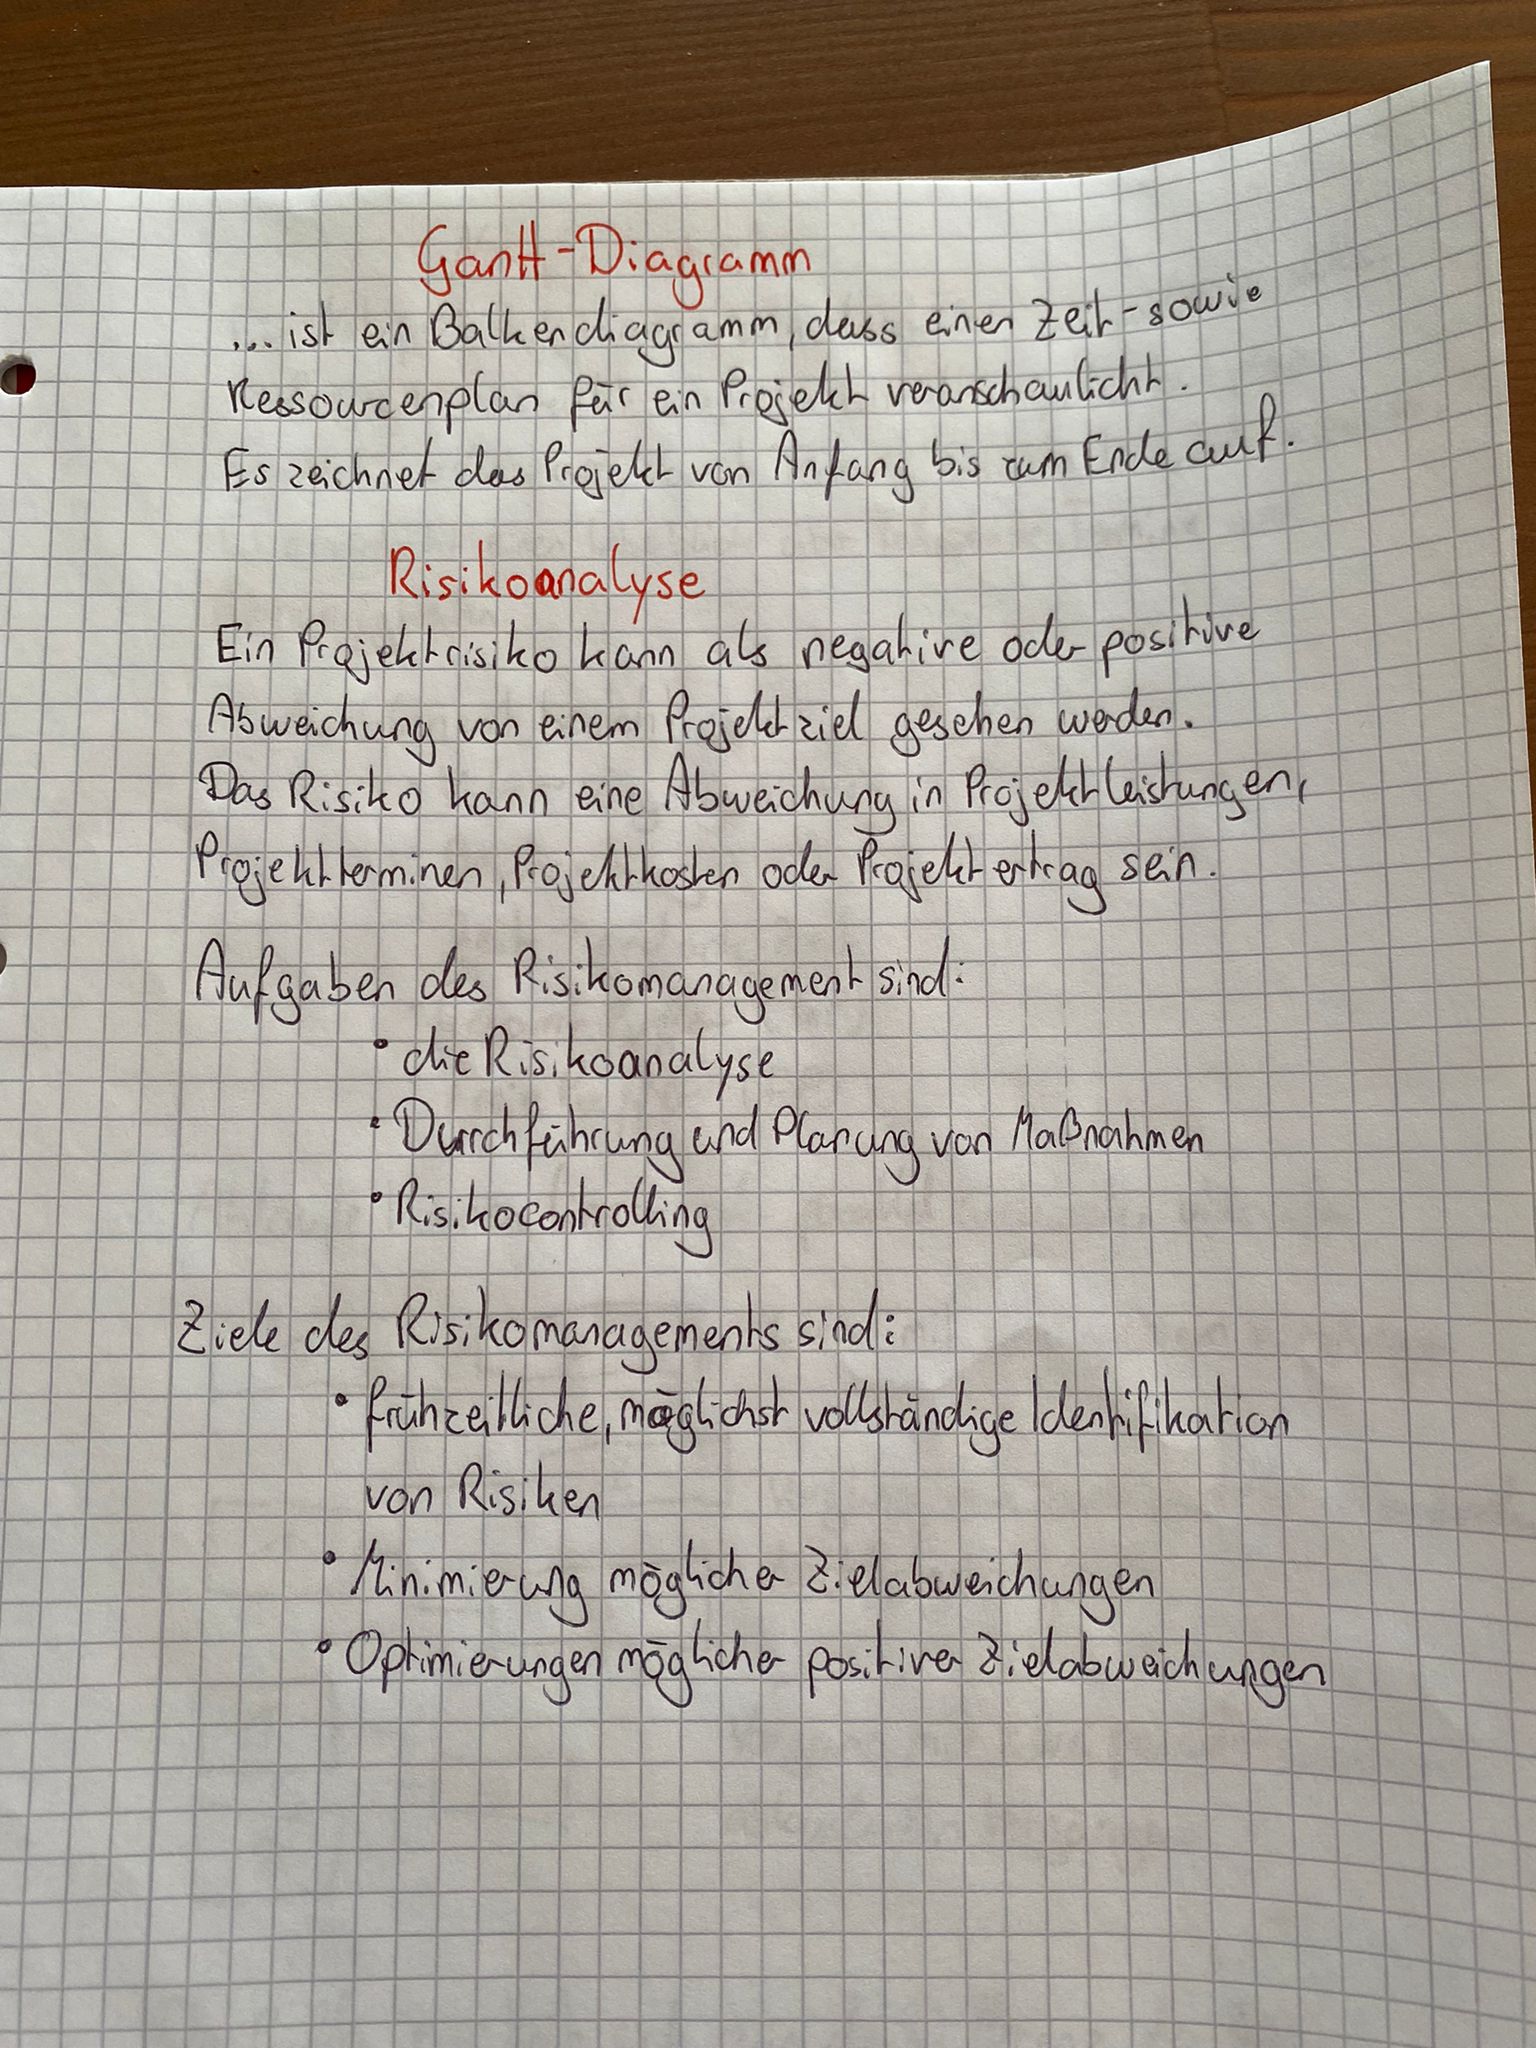 Gantt-Diagramm
... ist ein Balkendiagramm, dass einen Zeit- sowie
Ressourcenplan für ein Projekt veranschaulicht.
Es zeichnet das Projekt von Anfang bis zum Ende auf.
Risikoanalyse
Ein Projektrisiko kann als negative oder positive
Abweichung von einem Projektziel gesehen werden.
Das Risiko kann eine Abweichung in Projektleistungen,
Projektterminen, Projektkosten oder Projektertrag sein.
Aufgaben des Risikomanagement sind:
• die Risikoanalyse
• Durchführung und Planung von Maßnahmen
• Risikocontrolling
Ziele des Risikomanagements sind:
• frühzeitliche, möglichst vollständige Identifikation
von Risiken
• Minimierung möglicher Zielabweichungen
• Optimierungen möglicher positiver Zielabweichungen